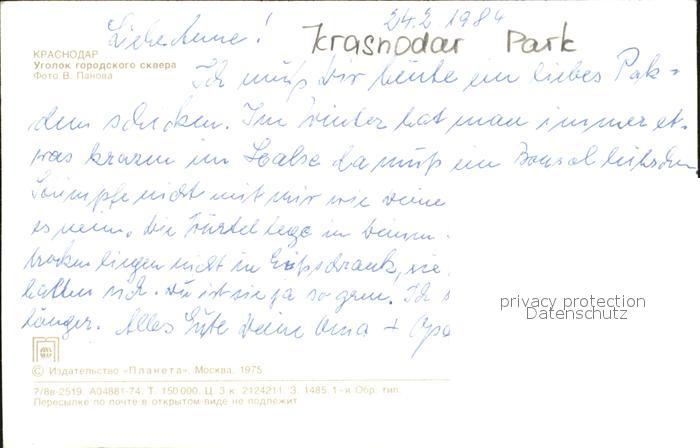 24.2 1984
Liebe Anne!
Krasnodar Park
КРАСНОДАР
Уголок городского сквера
Фото В. Панова
Ich muß Dir heute ein liebes Pak-
chen schicken. Im Winter hat man immer et-
was im Halse da muß ein
Schimpfe nicht mit mir wie Deine
es nein. Die Würstel lege in Deinen
trocken liegen nicht in Eisschrank, sie
halten sich. Du ist sie ja so gern. Ich
länger. Alles Gute Deine Oma + Opa
privacy protection
Datenschutz
© Издательство «Планета», Москва, 1975
7/8в-2519. А04881-74. Т. 150000. Ц. 3 к. 2124211. З. 1485. 1-я Обр. тип.
Пересылке по почте в открытом виде не подлежит